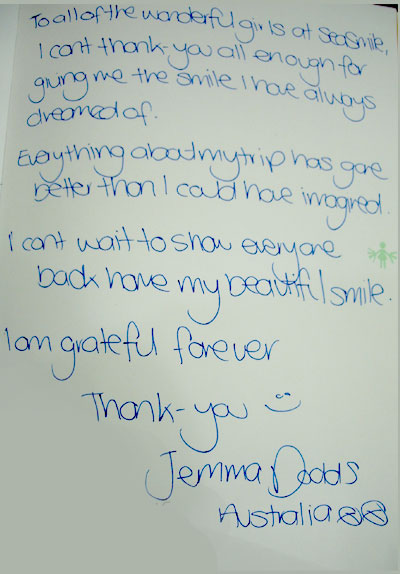 To all of the wonderful girls at seasmile,
I cant thank-you all enough for
giving me the smile I have always
dreamed of.
Everything about my trip has gone
better than I could have imagined.
I cant wait to show everyone
back home my beautiful smile.
I am grateful forever
Thank-you
Jemma Dodds
Australia